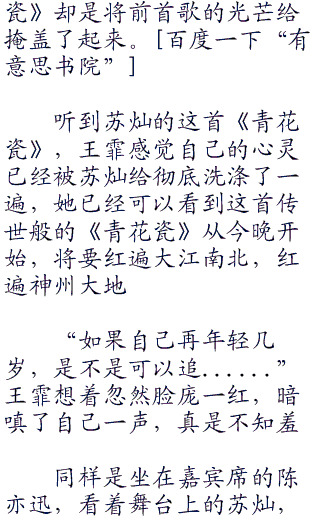 瓷》却是将前首歌的光芒给
掩盖了起来。[百度一下“有
意思书院”]
听到苏灿的这首《青花
瓷》，王霏感觉自己的心灵
已经被苏灿给彻底洗涤了一
遍，她已经可以看到这首传
世般的《青花瓷》从今晚开
始，将要红遍大江南北，红
遍神州大地
“如果自己再年轻几
岁，是不是可以追......”
王霏想着忽然脸庞一红，暗
嗔了自己一声，真是不知羞
同样是坐在嘉宾席的陈
亦迅，看着舞台上的苏灿，